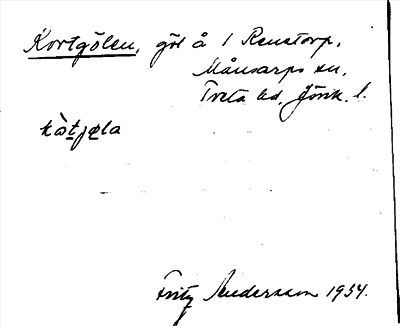 Kortgölen, göl å 1 Renstorp,
Månsarps sn,
Tveta hd, Jönk. l.
kò̱tjɶla
Fritz Andersson 1934.